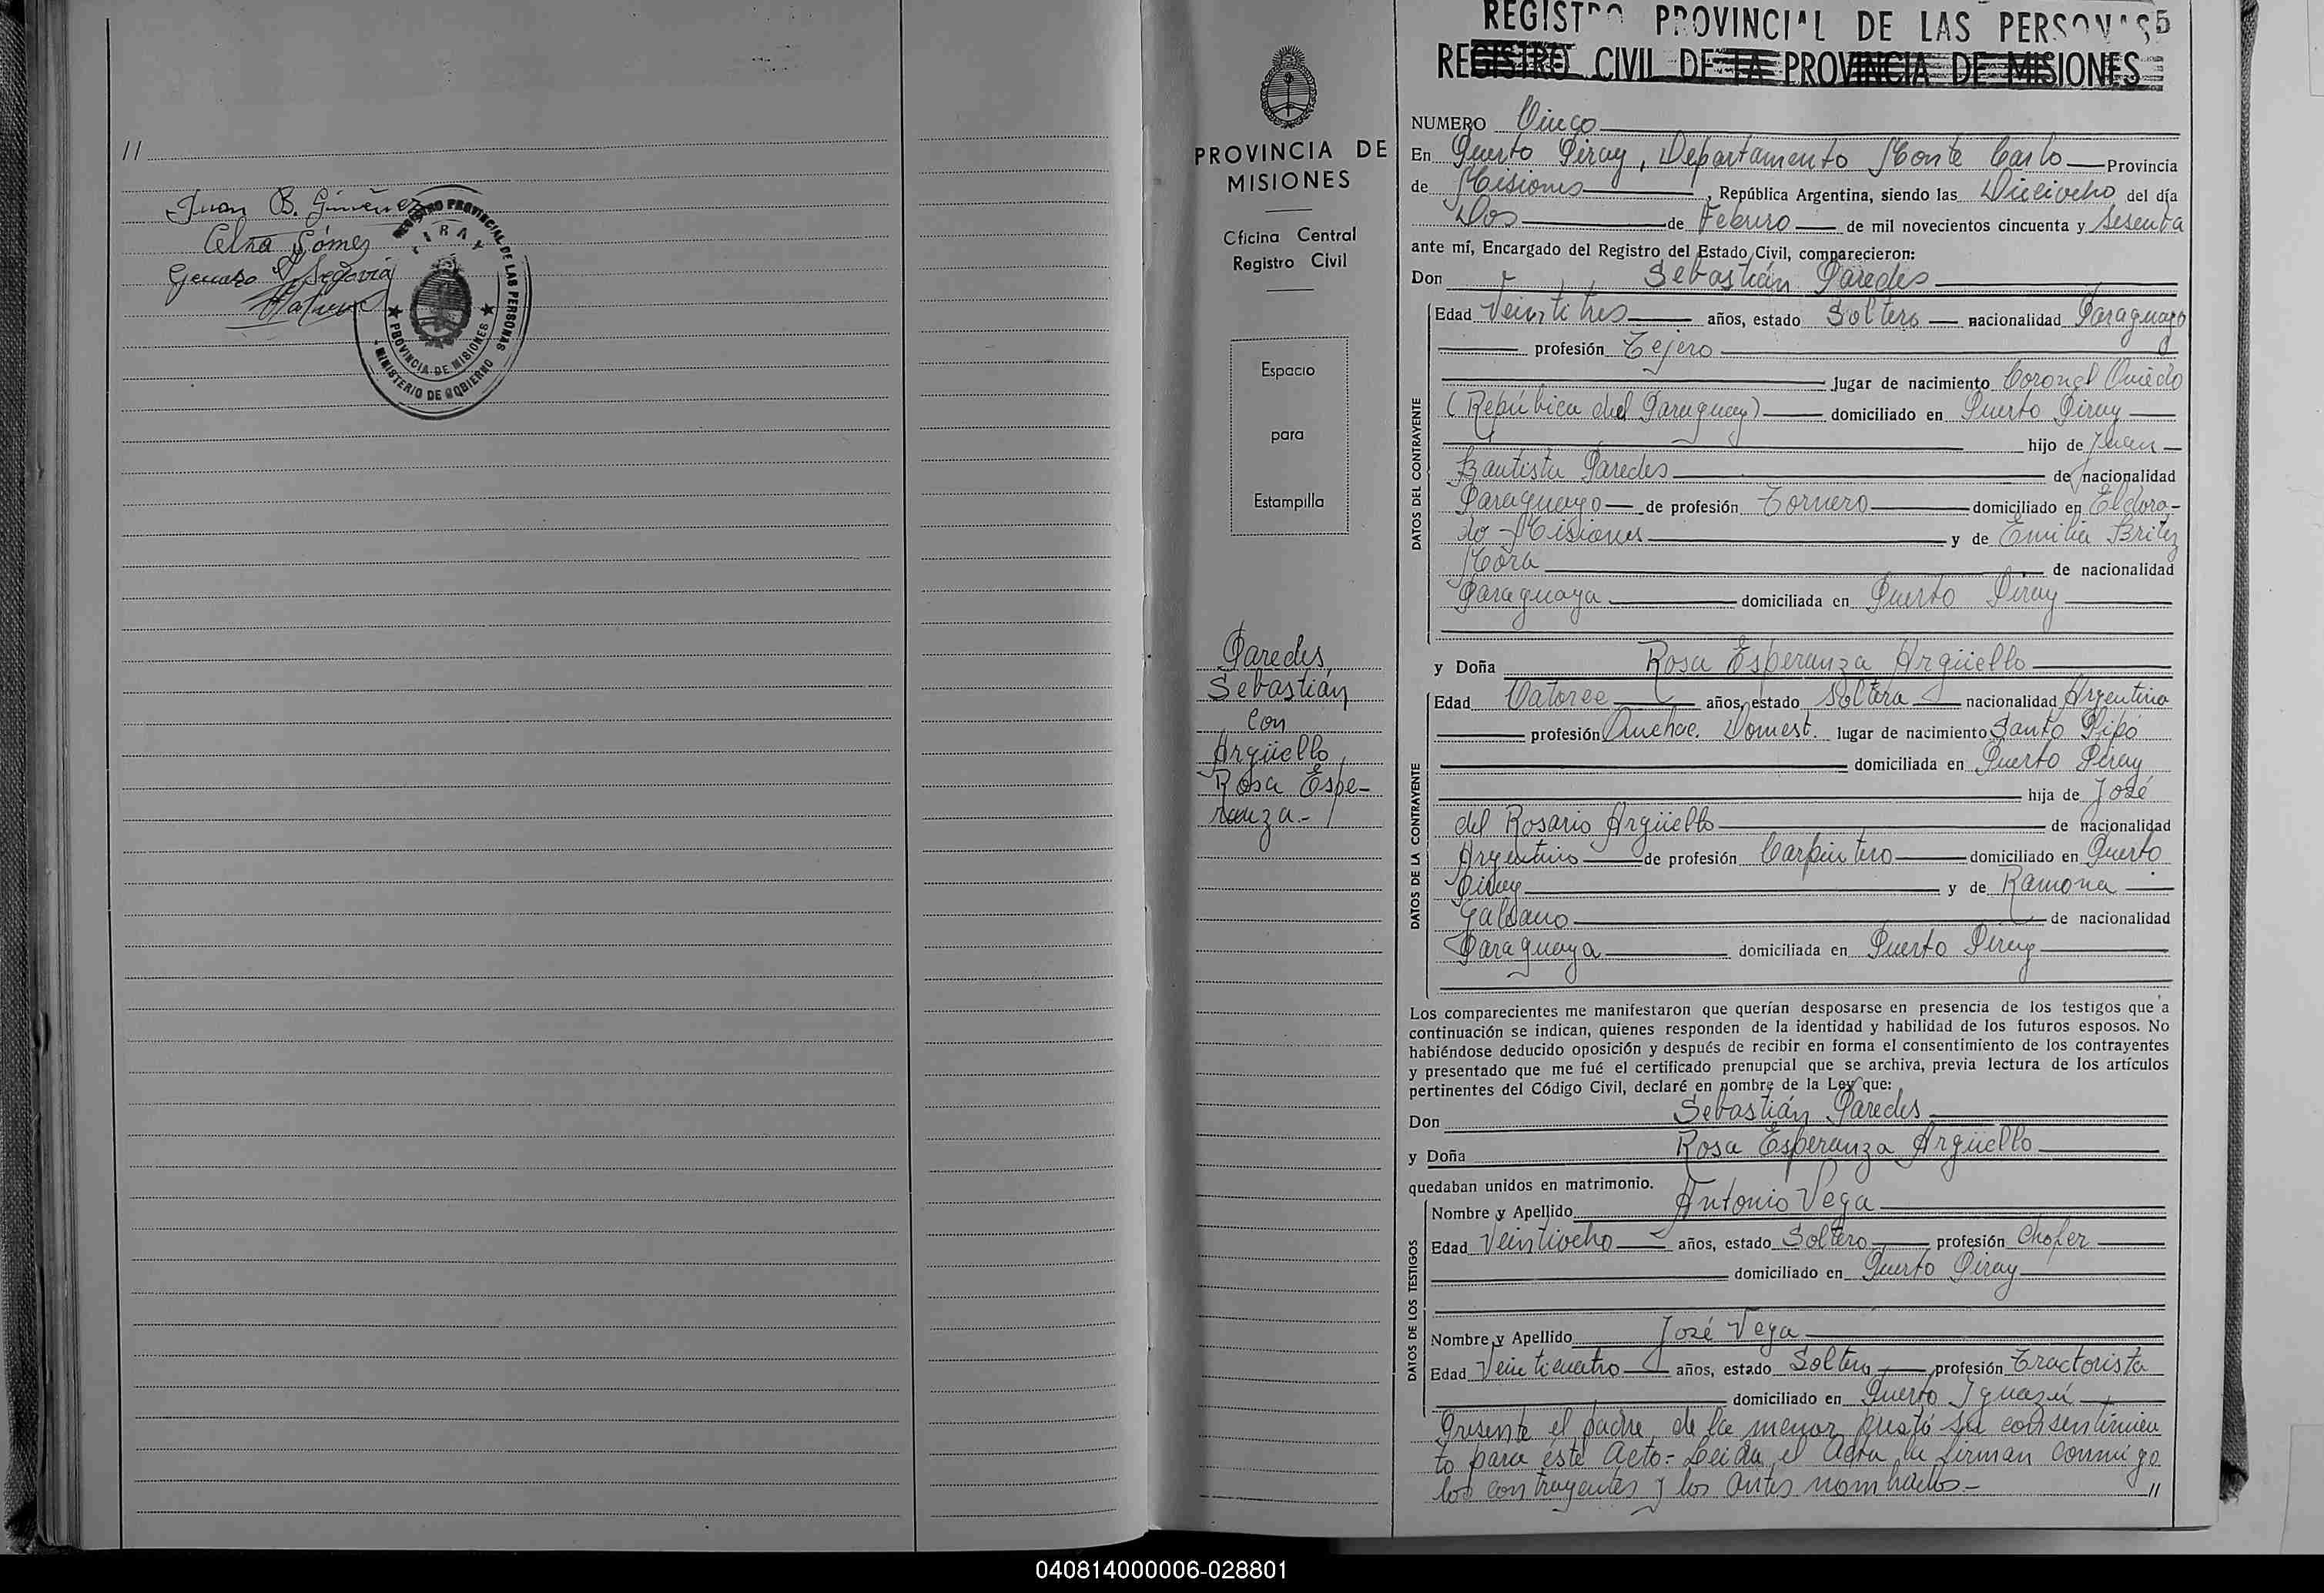 //
Juan B. Giménez
Celna Gómez
Genaro J. Segovia
REGISTRO PROVINCIAL DE LAS PERSONAS
PIRAY
PROVINCIA DE MISIONES
MINISTERIO DE GOBIERNO
PROVINCIA DE
MISIONES
Oficina Central
Registro Civil
Espacio
para
Estampilla
Paredes,
Sebastián
con
Argüello,
Rosa Espe-
ranza.-
REGISTRO PROVINCIAL DE LAS PERSONAS 5
REGISTRO CIVIL DE LA PROVINCIA DE MISIONES
NUMERO Cinco
En Puerto Piray, Departamento Monte Carlo Provincia
de Misiones, República Argentina, siendo las Dieciocho del día
Dos de Febrero de mil novecientos cincuenta y Sesenta
ante mí, Encargado del Registro del Estado Civil, comparecieron:
Don Sebastián Paredes
DATOS DEL CONTRAYENTE
Edad Veintitres años, estado Soltero nacionalidad Paraguayo
profesión Tejero
lugar de nacimiento Coronel Oviedo
(República del Paraguay) domiciliado en Puerto Piray
hijo de Juan
Bautista Paredes de nacionalidad
Paraguayo de profesión Tornero domiciliado en Eldora-
do - Misiones y de Emilia Britez
Mora de nacionalidad
Paraguaya domiciliada en Puerto Piray
y Doña Rosa Esperanza Argüello
DATOS DE LA CONTRAYENTE
Edad Catorce años, estado Soltera nacionalidad Argentina
profesión Quehac. Domest. lugar de nacimiento Santo Pipó
domiciliada en Puerto Piray
hija de José
del Rosario Argüello de nacionalidad
Argentino de profesión Carpintero domiciliado en Puerto
Piray y de Ramona
Galeano de nacionalidad
Paraguaya domiciliada en Puerto Piray
Los comparecientes me manifestaron que querían desposarse en presencia de los testigos que a
continuación se indican, quienes responden de la identidad y habilidad de los futuros esposos. No
habiéndose deducido oposición y después de recibir en forma el consentimiento de los contrayentes
y presentado que me fué el certificado prenupcial que se archiva, previa lectura de los artículos
pertinentes del Código Civil, declaré en nombre de la Ley que:
Don Sebastián Paredes
y Doña Rosa Esperanza Argüello
quedaban unidos en matrimonio.
DATOS DE LOS TESTIGOS
Nombre y Apellido Antonio Vega
Edad Veintiocho años, estado Soltero profesión Chofer
domiciliado en Puerto Piray
Nombre y Apellido José Vega
Edad Veinticuatro años, estado Soltero profesión Tractorista
domiciliado en Puerto Iguazú
Presente el padre de la menor prestó su consentimien
to para éste Acto.- Leída el Acta la firman conmigo
los contrayentes y los antes nombrados.- //
040814000006-028801